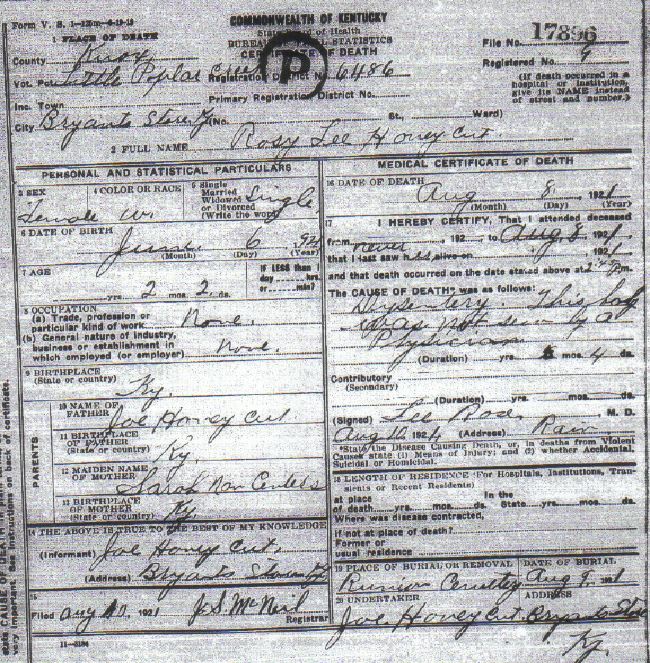 Form V. S. 1-
COMMONWEALTH OF KENTUCKY
State of Health
BUREAU OF VITAL STATISTICS
CERTIFICATE OF DEATH
P
File No. 17896
Registered No. 9
(If death occurred in a hospital or institution, give its NAME instead of street and number.)
1 PLACE OF DEATH
County Knox
Vot. Pct. Little Poplar Creek Registration District No. 6486
Inc. Town Primary Registration District No.
City Bryants Store Ky (No. St., Ward)
2 FULL NAME Rosy Lee Honey Cut.
PERSONAL AND STATISTICAL PARTICULARS
3 SEX
Female
4 COLOR OR RACE
W.
5 Single
Married
Widowed
or Divorced
(Write the word)
Single
6 DATE OF BIRTH
June 6 921
(Month) (Day) (Year)
7 AGE
yrs. 2 mos. 2 ds.
IF LESS than 1
day hrs.
or min?
8 OCCUPATION
(a) Trade, profession or
particular kind of work None.
(b) General nature of industry,
business or establishment in
which employed (or employer) None.
9 BIRTHPLACE
(State or country) Ky.
PARENTS
10 NAME OF
FATHER Joe Honey Cut
11 BIRTHPLACE
OF FATHER
(State or country) Ky.
12 MAIDEN NAME
OF MOTHER Sarah
13 BIRTHPLACE
OF MOTHER
(State or country) Ky
14 THE ABOVE IS TRUE TO THE BEST OF MY KNOWLEDGE
(Informant) Joe Honey Cut
(Address) Bryants Store Ky
15
Filed Aug 10, 1921 J.S. McNeil
Registrar
MEDICAL CERTIFICATE OF DEATH
16 DATE OF DEATH
Aug 8, 1921
(Month) (Day) (Year)
17 I HEREBY CERTIFY, That I attended deceased
from never, 192 , to Aug 8, 1921
that I last saw h alive on , 1921
and that death occurred on the date stated above at 2 m.
The CAUSE OF DEATH* was as follows:
Dysentery. This
was not seen by a
Physician
(Duration) yrs. mos. 4 ds.
Contributory
(Secondary)
(Duration) yrs. mos. ds.
(Signed) Lee M. D.
Aug 10, 1921 (Address) Rain
*State the Disease Causing Death, or, in deaths from Violent
Causes state (i) Means of Injury; and (2) whether Accidental,
Suicidal or Homicidal.
18 LENGTH OF RESIDENCE (For Hospitals, Institutions, Transients or Recent Residents)
at place In the
of death yrs. mos. ds. State yrs. mos. ds.
Where was disease contracted,
if not at place of death?
Former or
usual residence
19 PLACE OF BURIAL OR REMOVAL DATE OF BURIAL
Cemetery Aug 9, 1921
20 UNDERTAKER ADDRESS
Joe Honey Cut. Bryants Store
Ky.